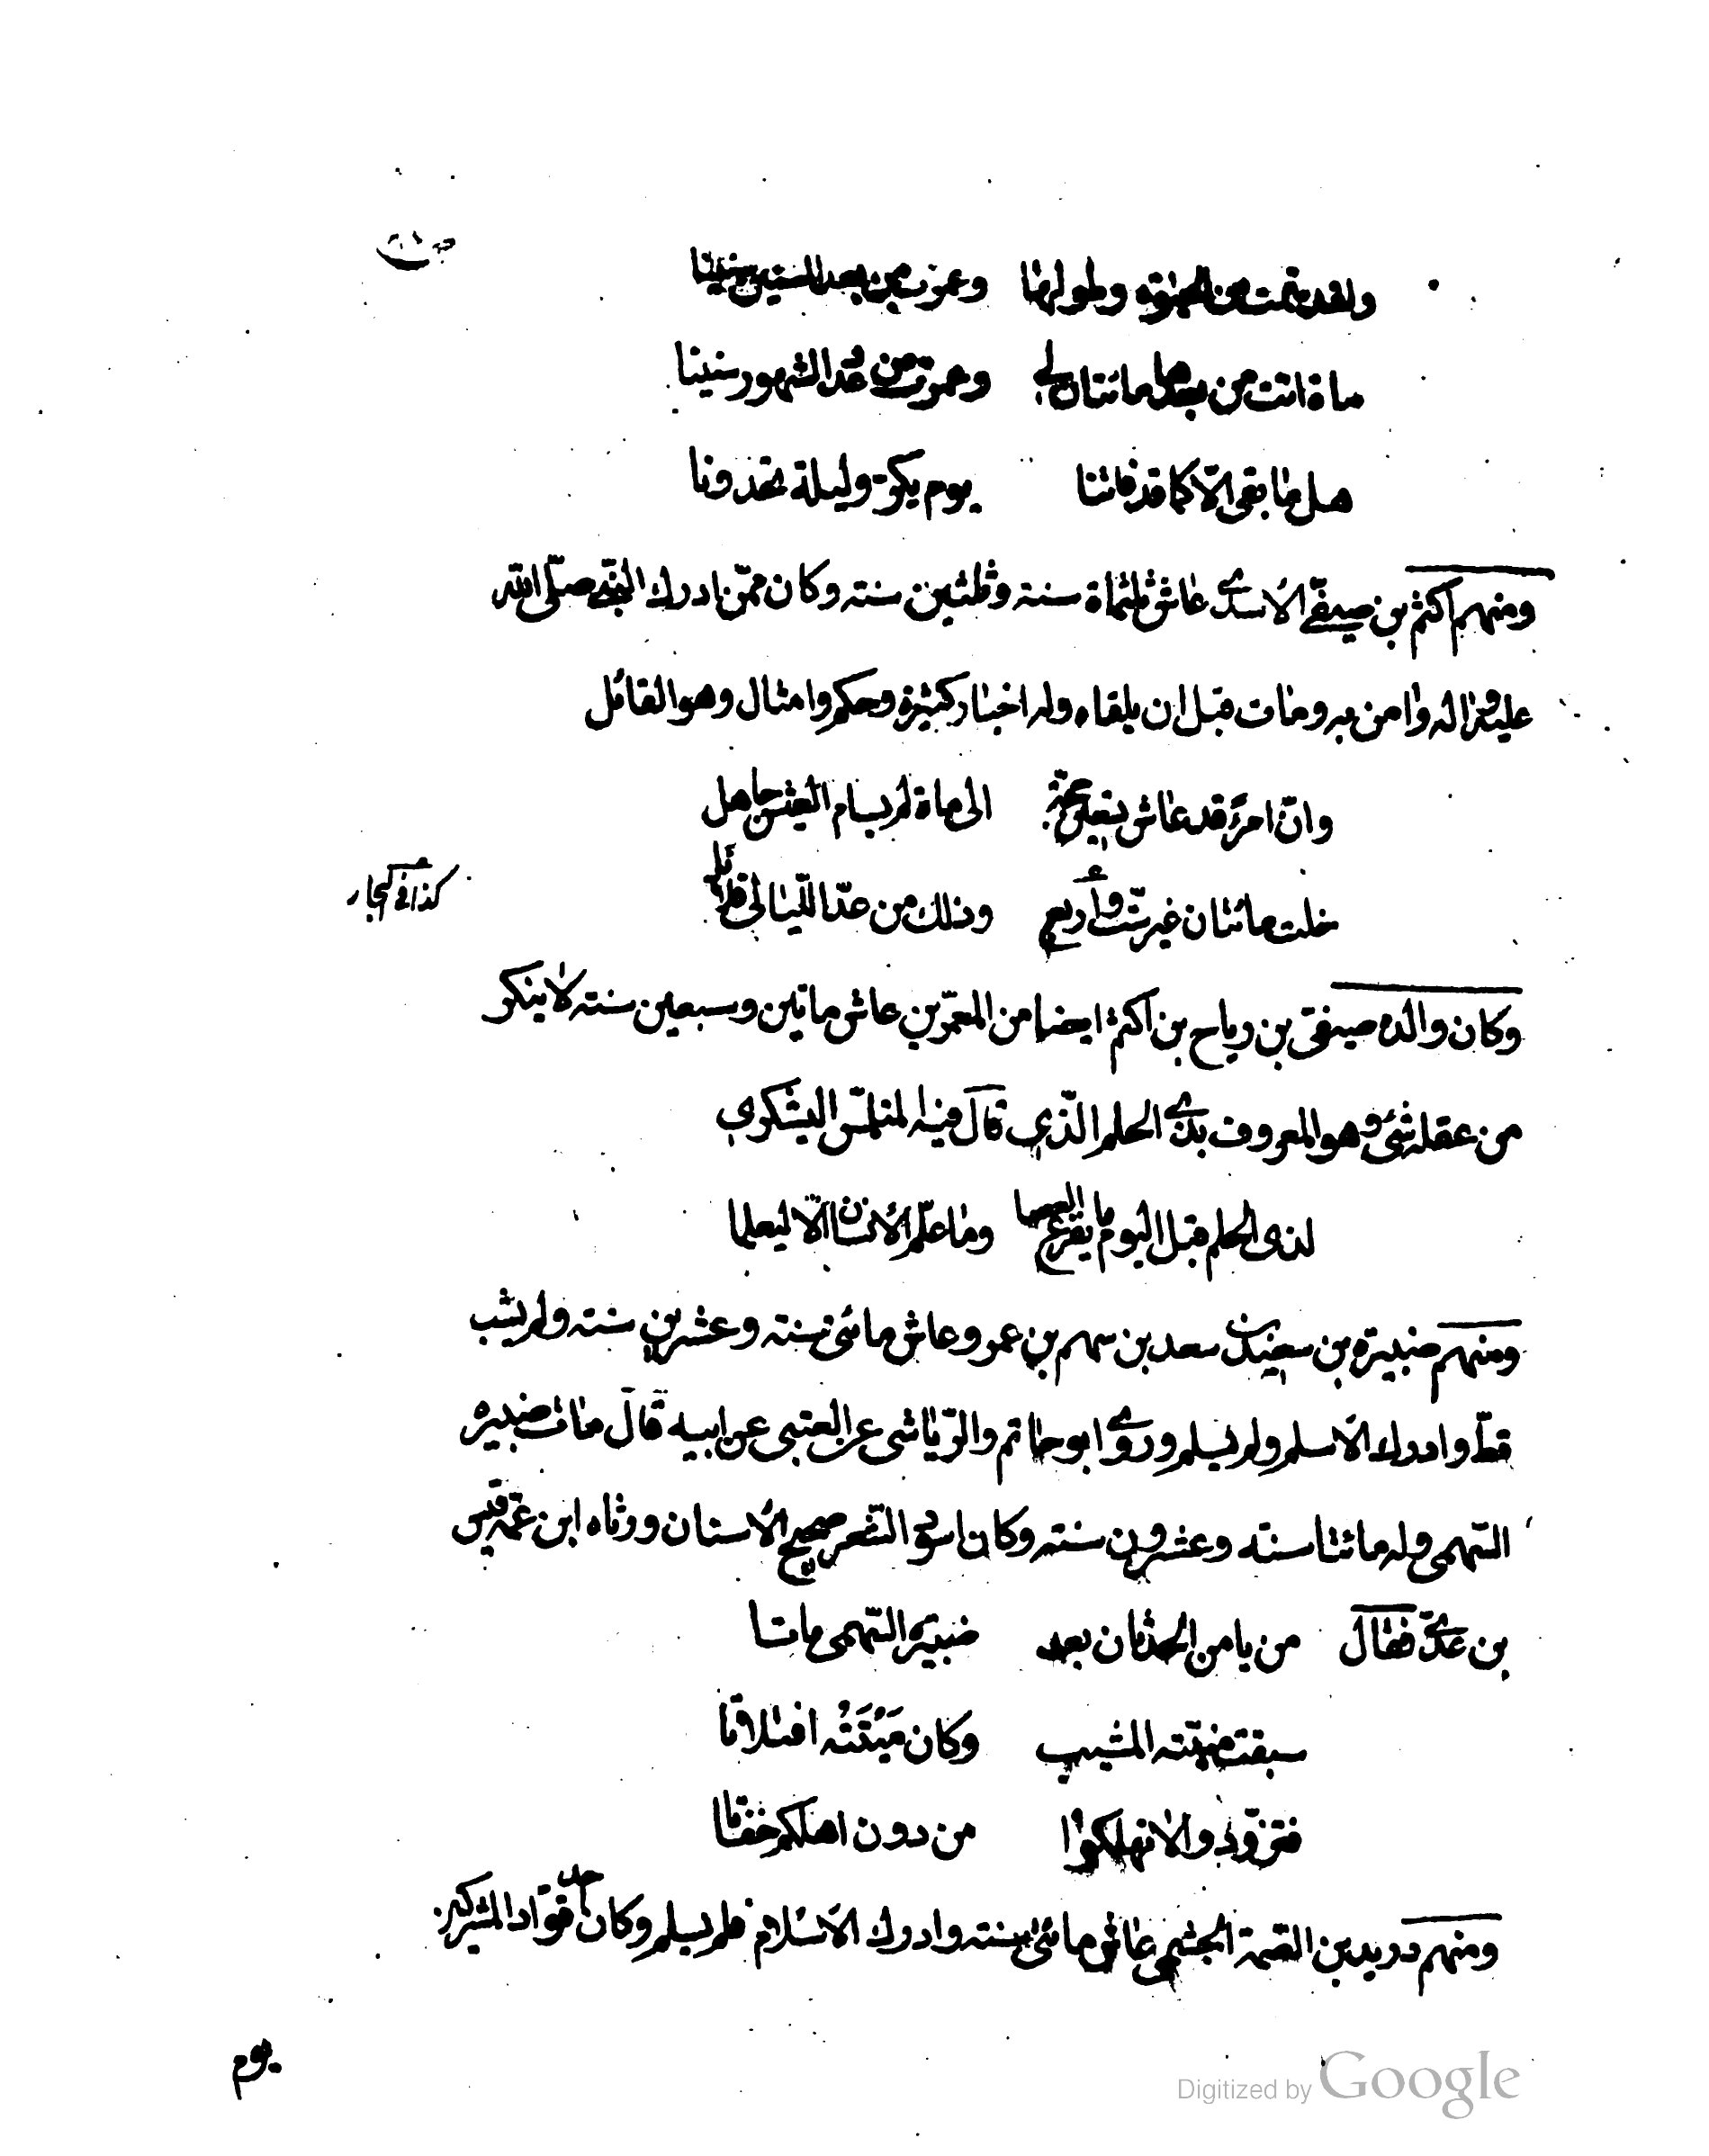 ولقد سئمت من الحيوة وطولها وعمرت من بعد السنين سنينا
ماة اتت من بعدها مائتان لي وعمرت من عدد الشهور سنينا
هل ما بقى الا كما قد فاتنا يوم يكر وليلة تحدونا
ومنهم اكثم بن صيفي الاسدي عاش ثلثماة سنة وثلثين سنة وكان ممن ادرك النبي صلى الله
عليه واله وامن به ومات قبل ان يلقاه وله اخبار كثيرة وحكم وامثال وهو القائل
وان امرءً قد عاش تسعين حجة الى ماة لم يسام العيش جاهل
خلت مائتان غير ست وأربع وذلك من عد الليالي قلائل
كذا في البحار
وكان والده صيفي بن رياح بن اكثم ايضا من المعمرين عاش ماتين وسبعين سنة لا ينكر
من عقله شئ وهو المعروف بذي الحلم الذي قال فيه المتلمس اليشكري
لذى الحلم قبل اليوم ما يقرع العصا وما علم الانسان الا ليعلما
ومنهم ضبيرة بن سعيد بن سعد بن سهم بن عمرو عاش مائتى سنة وعشرين سنة ولم يشب
قط وادرك الاسلم ولم يسلم وروى ابو حاتم والرياشى عن العتبى عن ابيه قال مات ضبيره
السهمى وله مائتا سنة وعشرون سنة وكان اسود الشعر صحيح الاسنان ورثاه ابن عمه قيس
بن عدي فقال من يامن الحدثان بعد ضبيرة السهمى ماتا
سبقت منيته المشيب وكان مَيْتَتُه افتلاتا
فتزودوا لا تهلكوا من دون اهلكم خفاتا
ومنهم دريد بن الصمة الجشمي عاش مائتى سنة وادرك الاسلام فلم يسلم وكان احد قواد المشركين
يوم
Digitized by Google